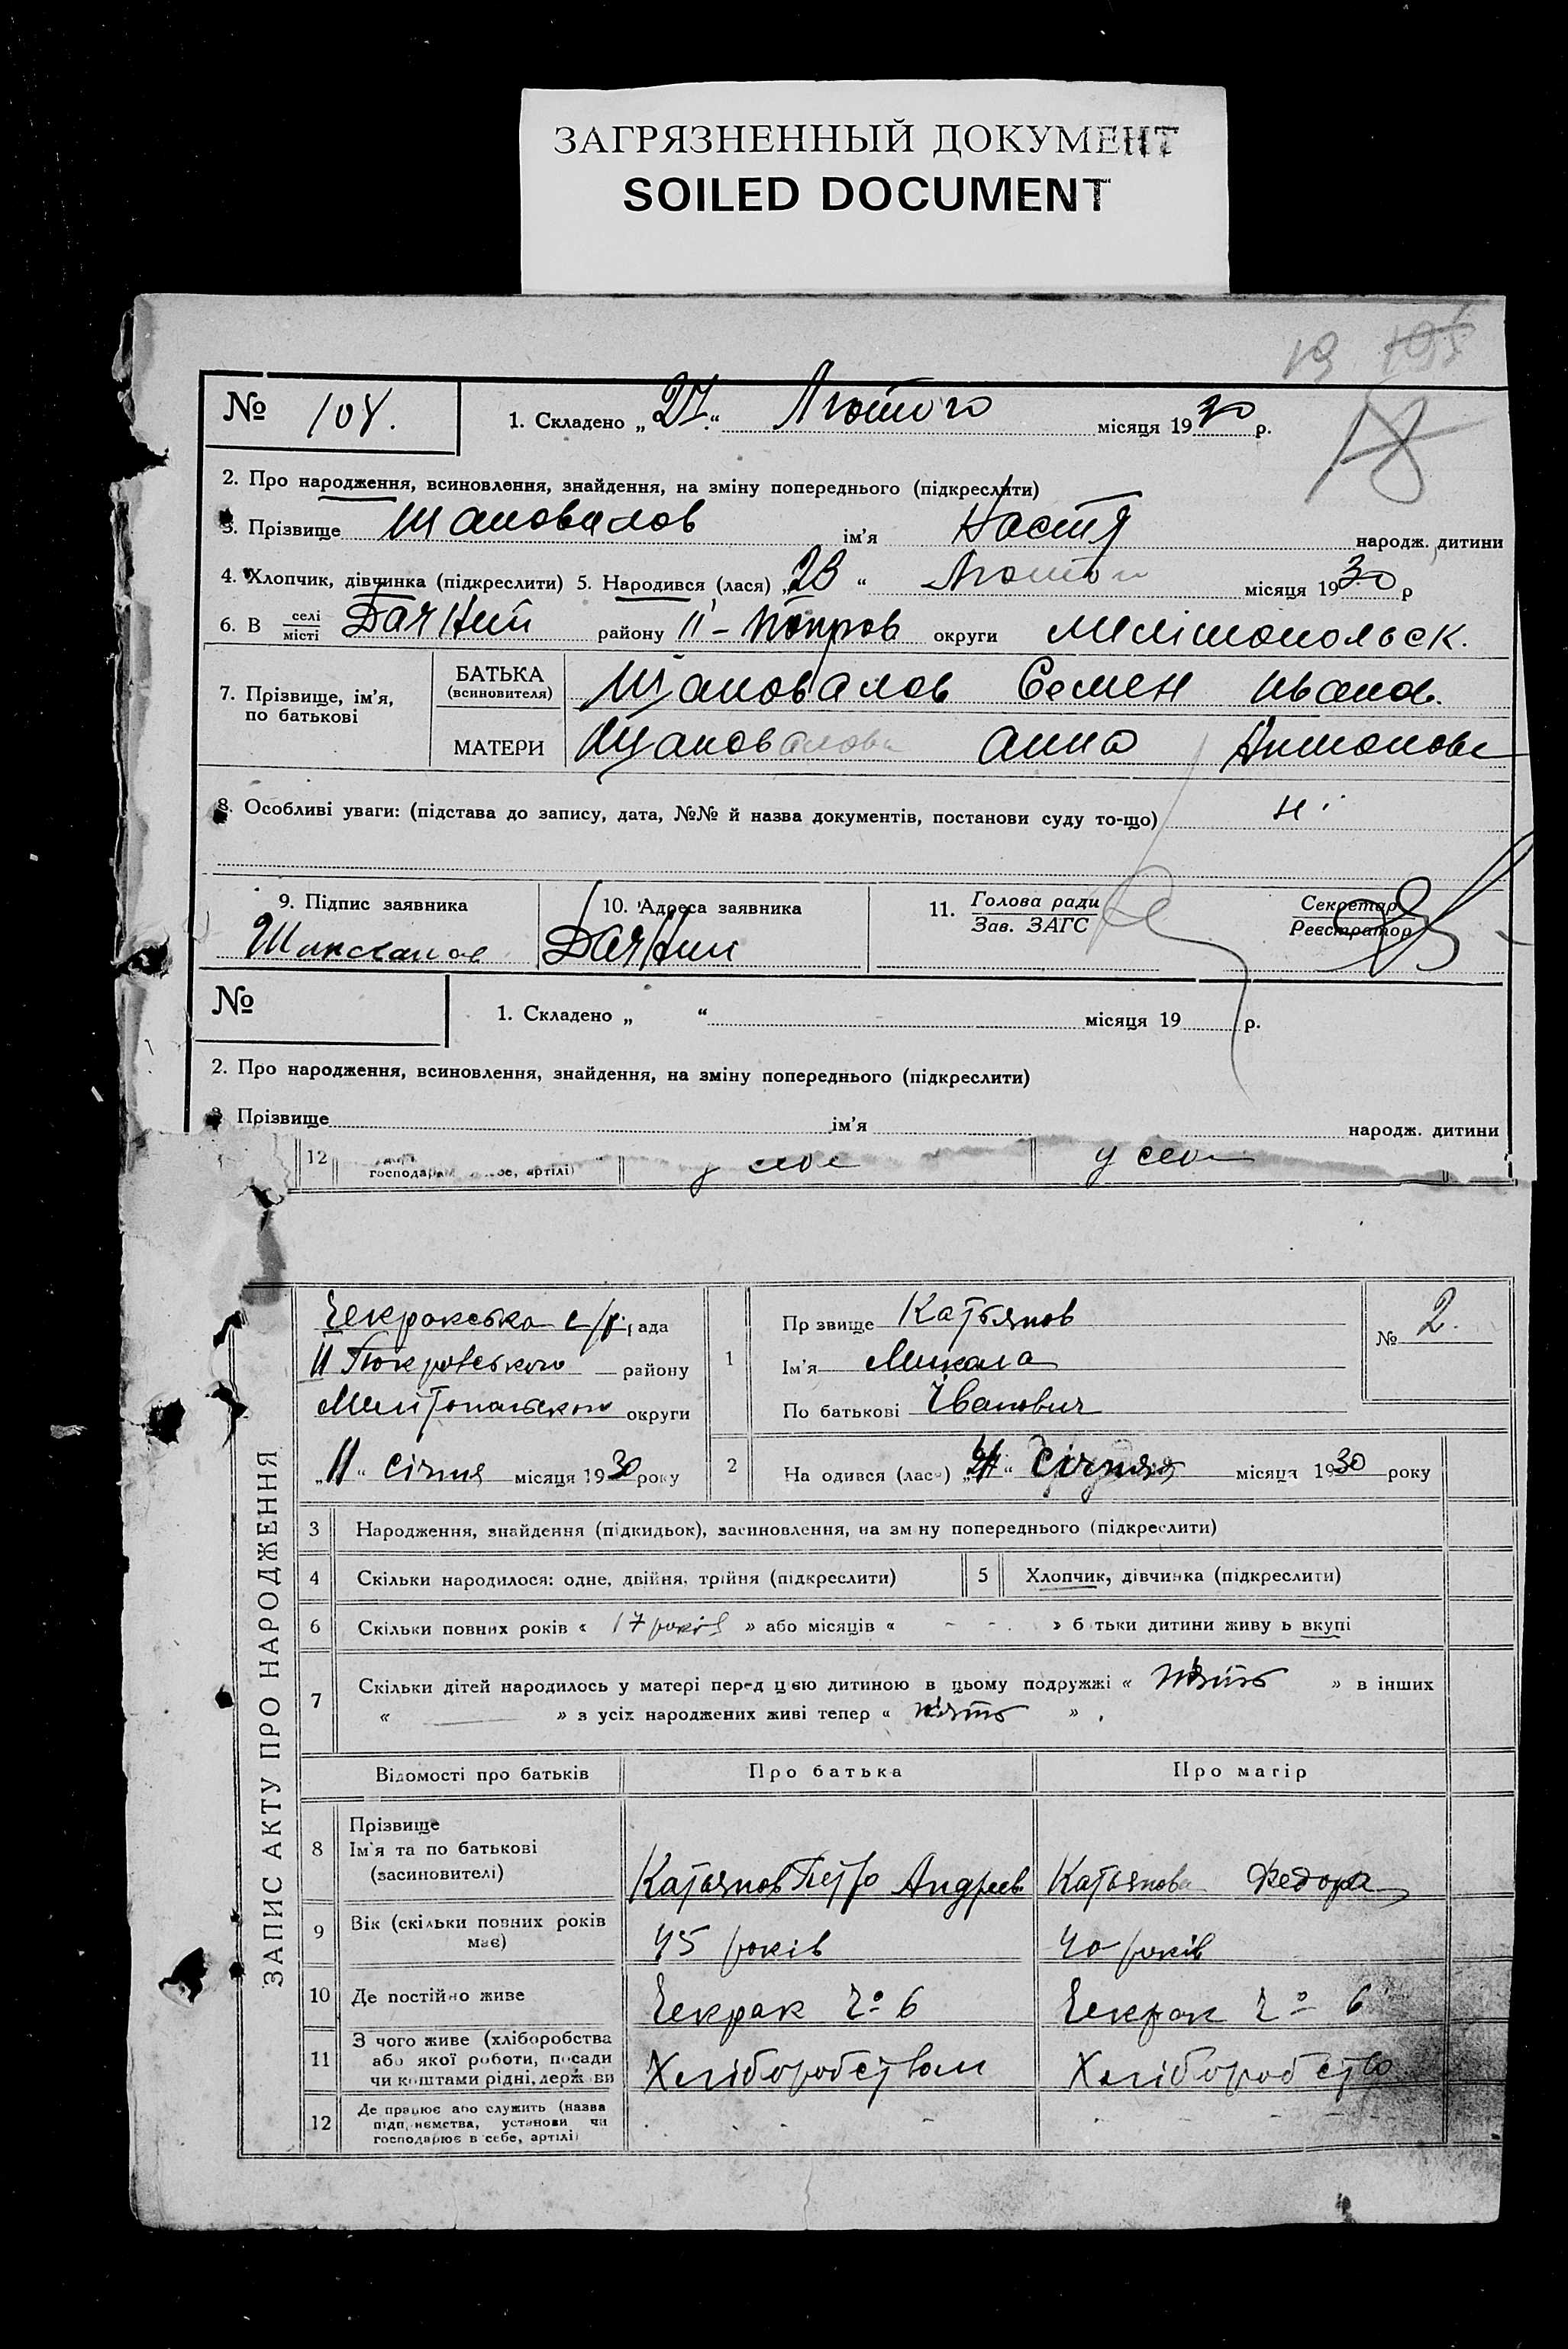 ЗАГРЯЗНЕННЫЙ ДОКУМЕНТ
SOILED DOCUMENT
19
18
№ 104.
1. Складено „27.“ Лютого місяця 1930 р.
2. Про народження, всиновлення, знайдення, на зміну попереднього (підкреслити)
3. Прізвище Шаповалов ім’я Настя народж. дитини
4. Хлопчик, дівчинка (підкреслити) 5. Народився (лася) „23“ Лютого місяця 1930 р
6. В селі місті району ІІ-Покров округи Мелітопольск.
7. Прізвище, ім’я, по батькові
БАТЬКА (всиновителя) Шаповалов Семен Иванов.
МАТЕРИ Шаповалова Анна Антонова
8. Особливі уваги: (підстава до запису, дата, №№ й назва документів, постанови суду то-що) ні
9. Підпис заявника
10. Адреса заявника
11. Голова ради Зав. ЗАГС
Секретар Реєстратор
№
1. Складено „ “ місяця 19 р.
2. Про народження, всиновлення, знайдення, на зміну попереднього (підкреслити)
3 Прізвище ім’я народж. дитини
12 господарює в себе, артілі) у себе у себе
ЗАПИС АКТУ ПРО НАРОДЖЕННЯ
Чекракська с/р. рада
ІІ Покровського району
Мелітопольської округи
„11“ січня місяця 1930 року
1 Прізвище Катьянов
Ім’я Микола
По батькові Іванович
№ 2.
2 Народився (лася) січня місяця 1930 року
3 Народження, знайдення (підкидьок), засиновлення, на зміну попереднього (підкреслити)
4 Скільки народилося: одне, двійня, трійня (підкреслити) 5 Хлопчик, дівчинка (підкреслити)
6 Скільки повних років « 17 років » або місяців « - - » батьки дитини живуть вкупі
7 Скільки дітей народилось у матері перед цією дитиною в цьому подружжі « пять » в інших
« — » з усіх народжених живі тепер « пять » .
Відомості про батьків Про батька Про матір
8 Прізвище
Ім’я та по батькові
(засиновителі)
Катьянов Петро Андреев Катьянова Федора
9 Вік (скільки повних років має) 45 років 40 років
10 Де постійно живе Чекрак Ч° 6 Чекрак Ч° 6
11 З чого живе (хліборобства
або якої роботи, посади
чи коштами рідні, держави
Хліборобством Хліборобство
12 Де працює або служить (назва
підприємства, установи чи
господарює в себе, артілі)